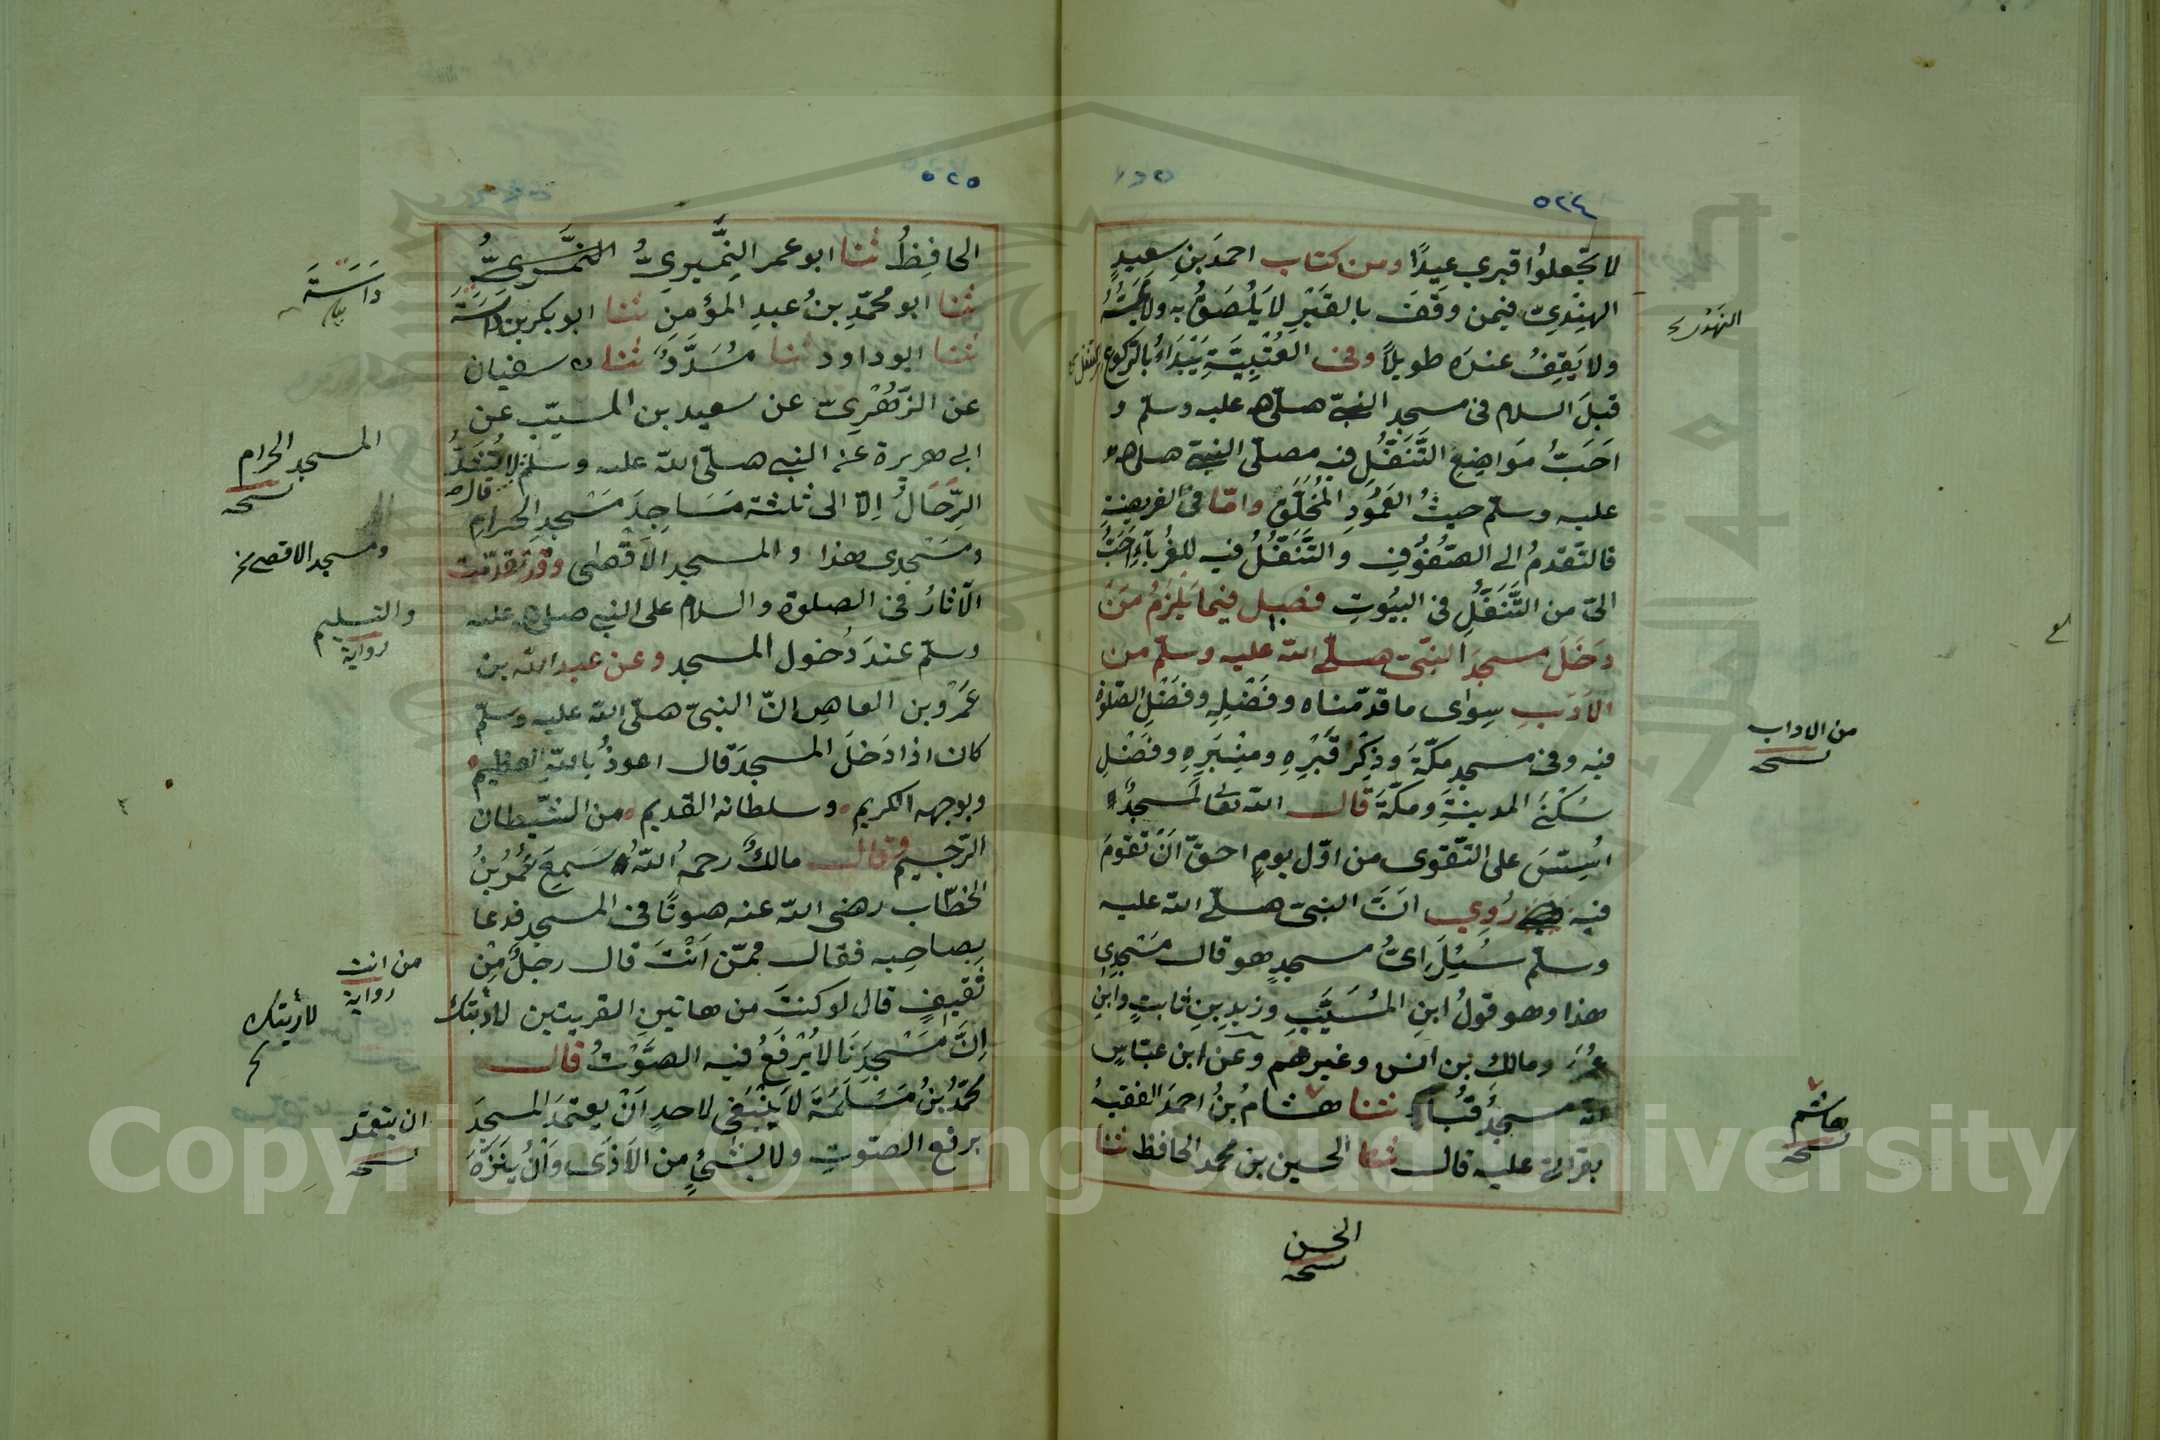 ٥٢٤
لا تجعلوا قبري عيدًا ومن كتاب احمدَ بنِ سعيدٍ
الهندِيّ فيمن وقَفَ بالقَبْرِ لا يَلْصَقُ به ولا يَمَسُّهُ
ولا يَقِفُ عندَه طويلًا وفى العُتْبِيَّةِ يَبْدَاءُ بالركوعِ
قبلَ السلام فى مسجدِ النبىّ صلى الله عليه وسلم و
اَحَبُّ مَوَاضِعِ التَّنَفُّلِ فيه مصلّى النبىّ صلى الله
عليه وسلّم حيثُ العَمُودِ المُخَلَّقِ وامّا فى الفريضةِ
فالتَّقدمُ الى الصّفُوفِ والتَّنَفُّلُ فيه للِغُرَبآءِ اَحَبُّ
الىّ من التَّنَفُّلِ فى البيُوتِ فصل فيما يَلزَمُ مَنْ
دخَلَ مسجدَ النبّىّ صلّى الله عليه وسلّم من
الاَدَبِ سِوٰى ما قدّمناه وفَضْلِهِ وفَضْلِ الصّلوٰة
فيه وفى مسجدِ مكّةَ وذِكْرِ قَبْرِهِ ومِنْبَرِهِ وفَضْلِ
سُكْنىَ المدينةِ ومكّةَ قال الله تعالى لمسجدٌ
اُسِّسَ على التّقوى من اوّل يومٍ احقّ اَنْ تقومَ
فيه رُوِي انَّ النبىّ صلّى الله عليه
وسلّم سُئِلَ اىُّ مسجدٍ هو قال مَسْجدِى
هذا وهو قولُ ابنِ المُسَيَّبِ وزيدِ بنِ ثابتٍ وابنِ
عُمَرَ ومالك بن انس وغيرهم وعن ابن عبّاسٍ
انّه مسجدُ قُبَاءٍ ثنا هشامُ بنُ احمدَ الفقيهُ
بقراتى عليه قال ثنا الحسين بن محمد الحافظ ثنا
من الاداب
نسخه
هاشم
نسخه
الحسن
نسخه
٥٢٥
الحافِظُ ثنا ابو عمر النِّمَيرِىُّ النَّمَرِىُّ
ثنا ابو محمّدِ بنُ عبدِ المؤمنَ ثنا ابو بكر بن دَاسَةَ
ثنا ابو داود ثنا مُسَدَّدٌ ثنا سفيان
عن الزّهْرِىّ عن سعيد بن المسيّب عن
ابى هريرة عن النبى صلّى الله عليه وسلم قال لا تُشَدُّ
الرِّحَالُ اِلّا الى ثلثة مَسَاجِدَ مَسْجدِ الحرامِ
ومَسْجدى هذا والمسجد الاَقْصٰى وقد تقدّمت
الآثارُ فى الصلوة والسلام على النبى صلى الله عليه
وسلّم عندَ دُخول المسجد وعن عبد الله بن
عَمْرو بن العاصِ انّ النبىّ صلّى الله عليه وسلّم
كان اذا دَخلَ المسجدَ قال اعوذُ بالله العظيم
وبوجهه الكريم وسلطانه القديم من الشّيطان
الرّجيم وقال مالكٌ رحمهُ اللّهُ سَمِعَ عُمَرُ بنُ
الخطّاب رضى الله عنه صوتًا فى المسجدِ فدعا
بِصاحِبه فقال مِمّن اَنْتَ قال رجلٌ مِنْ
ثقيفٍ قال لو كنتَ من هاتينِ القريتين لادّبتك
اِنَّ مَسْجِدَنَا لا يُرْفَعُ فيه الصَّوْتُ قال
محمّدُ بنُ مَسْلَمَةَ لا يَنْبَغى لاحدٍ اَنْ يعتمدَ المسجدَ
برفع الصّوتِ ولا بشئٍ من الاَذَى وَاَنْ يُنَزَّهَ
دَاسَةَ
المسجد الحرام
نسخه
ومسجد الاقصى
والتسليم
رواية
من انت
رواية
لادّبتك
ان يتعمّد
نسخه
Copyright © King Saud University